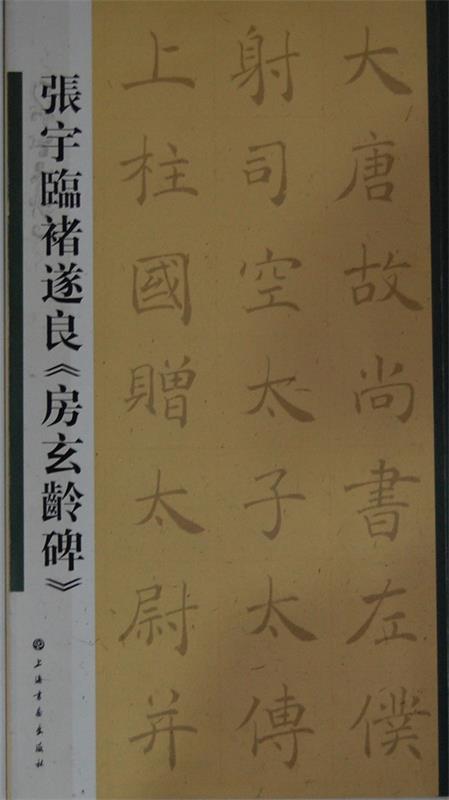 大唐故尚書左僕
射司空太子太傅
上柱國贈太尉并
張宇臨褚遂良《房玄齡碑》
上海書畫出版社